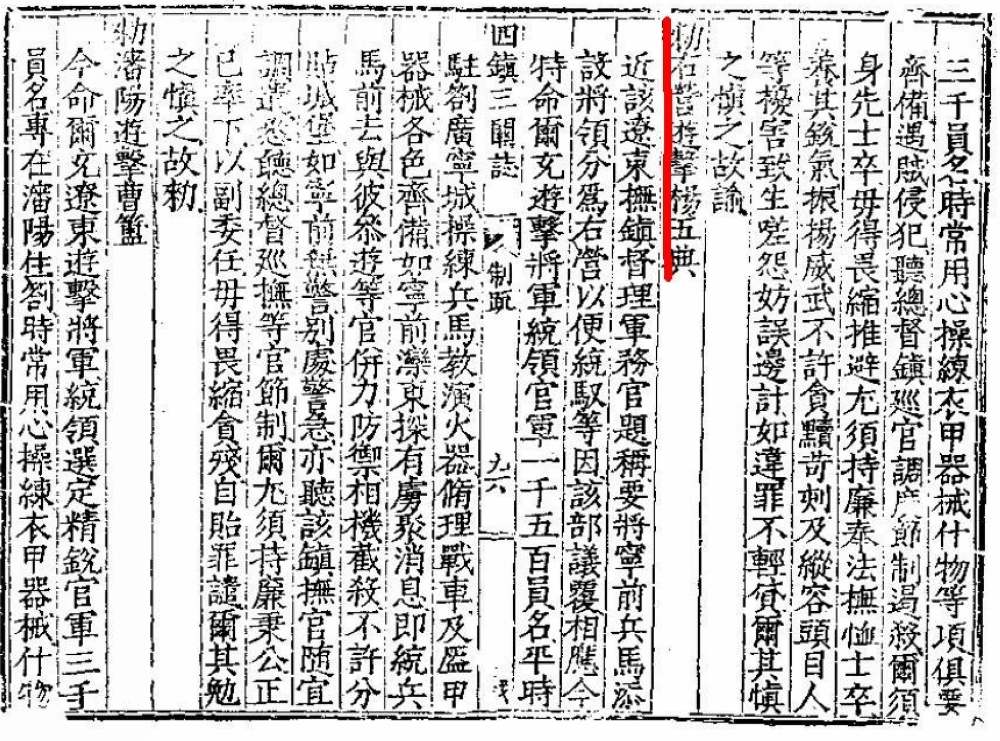 三千員名時常用心操練衣甲器械什物等項俱要
齊備遇賊侵犯聽總督鎮巡官調度節制遏殺爾須
身先士卒毋得畏縮推避尤須持廉奉法撫恤士卒
養其銳氣振揚威武不許貪黷苛刻及縱容頭目人
等擾害致生嗟怨妨誤邊計如違罪不輕貸爾其慎
之慎之故諭
勑右營遊擊楊五典
近該遼東撫鎮督理軍務官題稱要將寧前兵馬添
設將領分爲右營以便統馭等因該部議覆相應今
特命爾充遊擊將軍統領官軍一千五百員名平時
四鎮三關誌 制疏 九六
駐劄廣寧城操練兵馬教演火器脩理戰車及盔甲
器械各色齊備如寧前灤東探有虜聚消息即統兵
馬前去與彼叅遊等官併力防禦相機截殺不許分
城堡如寧前無警別處警急亦聽該鎮撫官随宜
調遣悉聽總督巡撫等官節制爾尤須持廉秉公正
已率下以副委任毋得畏縮貪殘自貽罪譴爾其勉
之慎之故勑
勑瀋陽遊擊曹簠
今命爾充遼東遊擊將軍統領選定精銳官軍三千
員名專在瀋陽住劄時常用心操練衣甲器械什物